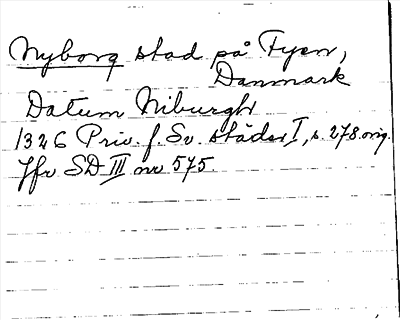 Nyborg stad på Fyen,
Danmark
Datum Niburgh
1326 Priv. f. Sv. städer I, s. 278 orig.
Jfr SD III nr 575.